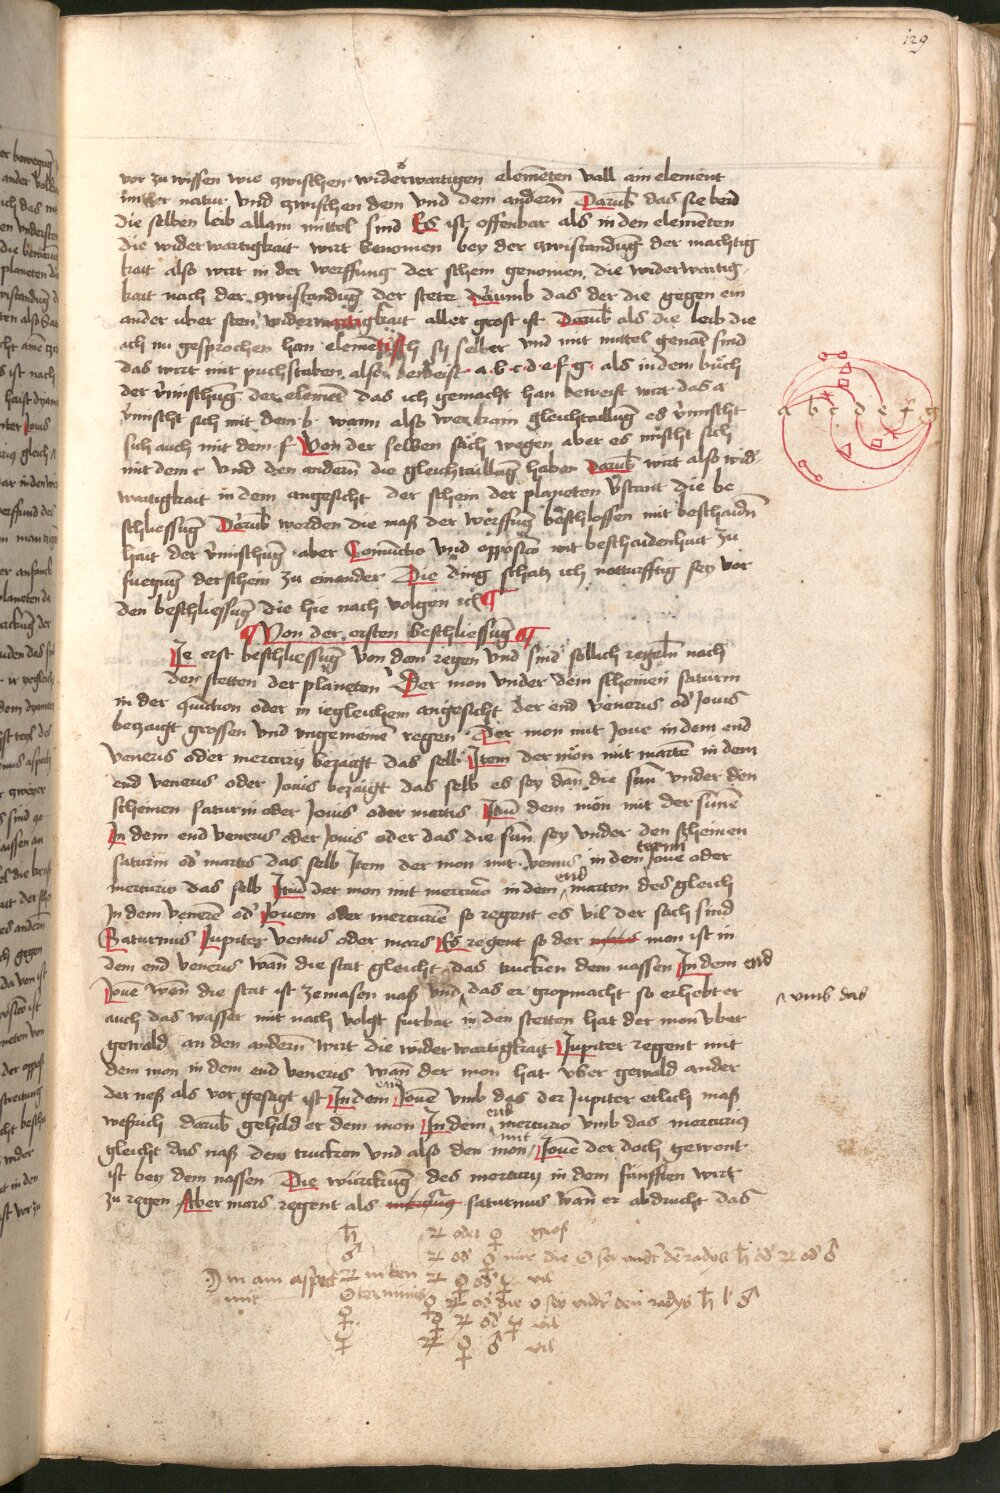 129
vor zu wissen wie zwischen widerwertigen elementen vall ain element
ir natur vnd zwischen dem vnd dem andern Darub das sie beid
die selben leib allain mittel sind Es ist offenbar als in den elementen
die wider wartigkait wirt benomen bey der zwistandung der machtig
kait also wirt in der werffung der schein genomen die widerwartig
kait nach der zwistandung der stete Darumb das der die gegen ein
ander uber sten widerwartigkait aller grost ist Darub als die leib die
ich nu gesprochen han elementisch sy selber vnd mit mittel genant sind
das wirt mit puchstaben also beweist a·b·c·d·e·f·g· als in dem buch
der vmischung der element das ich gemacht han beweist wirt das a
vmischt sich mit dem b· wann also wer kain gleichtailung es vmischt
sich auch mit dem f Von der selben sach wegen aber es mischt sich
mit dem c vnd den andern die gleichtailung haben Darub wirt also wid
wartigkait in dem angesicht der schein der planeten vstant die be
schliessung Darub werden die mass der werffung beschlossen mit beschaiden
hait der vmischung aber Coniuctio vnd opposicio mit beschaidenhait zu
fuegung der schein zu einander Die ding schatz ich notturfftig sey vor
den beschliessung die hie nach volgen ich
Von der ersten beschliessung
Ie erst beschliessung von dem regen vnd sind sollich regeln nach
den stetten der planeten Der mon vnder dem scheinen saturni
in der quction oder in iegleichem angesicht der end veneris od Jouis
bezaigt grossen vnd vngemeinen regen Der mon mit Joue in dem end
veneris oder mercurij bezaigt das selb Item der mon mit marte in dem
end veneris oder Jouis bezaigt das selb es sey dan die sun vnder den
scheinen saturni oder Jouis oder martis Itm dem mon mit der sunen
In dem end veneris oder Jouis oder das die sun sey vnder den scheinen
saturni od martis das selb Item der mon mit venus in dem termi Joue oder
mercurio das selb Itm der mon mit mercurio in dem end marten des gleich
In dem venere od Jouem oder mercurien so regent es vil der sach sind
Saturnus Jupiter venus oder mars Es regent so der mon ist in
dem end veneris wan die stat gleicht das trucken dem nassen In dem end
Joue wan die stat ist zemasen nass vnd das er gropmacht so erhebt er
^ vmb das
auch das wasser mit nach volgt furbar in den stetten hat der mon vber
gewald an den andern wirt die wider wartigkait Jupiter regent mit
dem mon in dem end veneris wan der mon hat vber gewald ander
der ness als vor gesagt ist In dem end Jouen vmb das der Jupiter etlich mass
darub gehild er dem mon In dem end mercurio vmb das mercurius
gleicht das nass dem trucken vnd also den mon mit Joue der doch gewont
ist bey dem nassen Die wurckung des mercurij in dem funfften wirt
zu regen Aber mars regent als saturnus wan er abdrucht das
a b c d e f g
♄ ♃ oder ♀ gross
♂ ♃ od
☽ in ain aspect ♃ in den ♃ ♀ od ☿ vil
mit ☉ terminis ♀ ♃ od die ☉ sey vndr den radys ♄ l ♂
♀ ☿ ♃ od ♀ vil
☿ ♃ ♀ ♂ vil